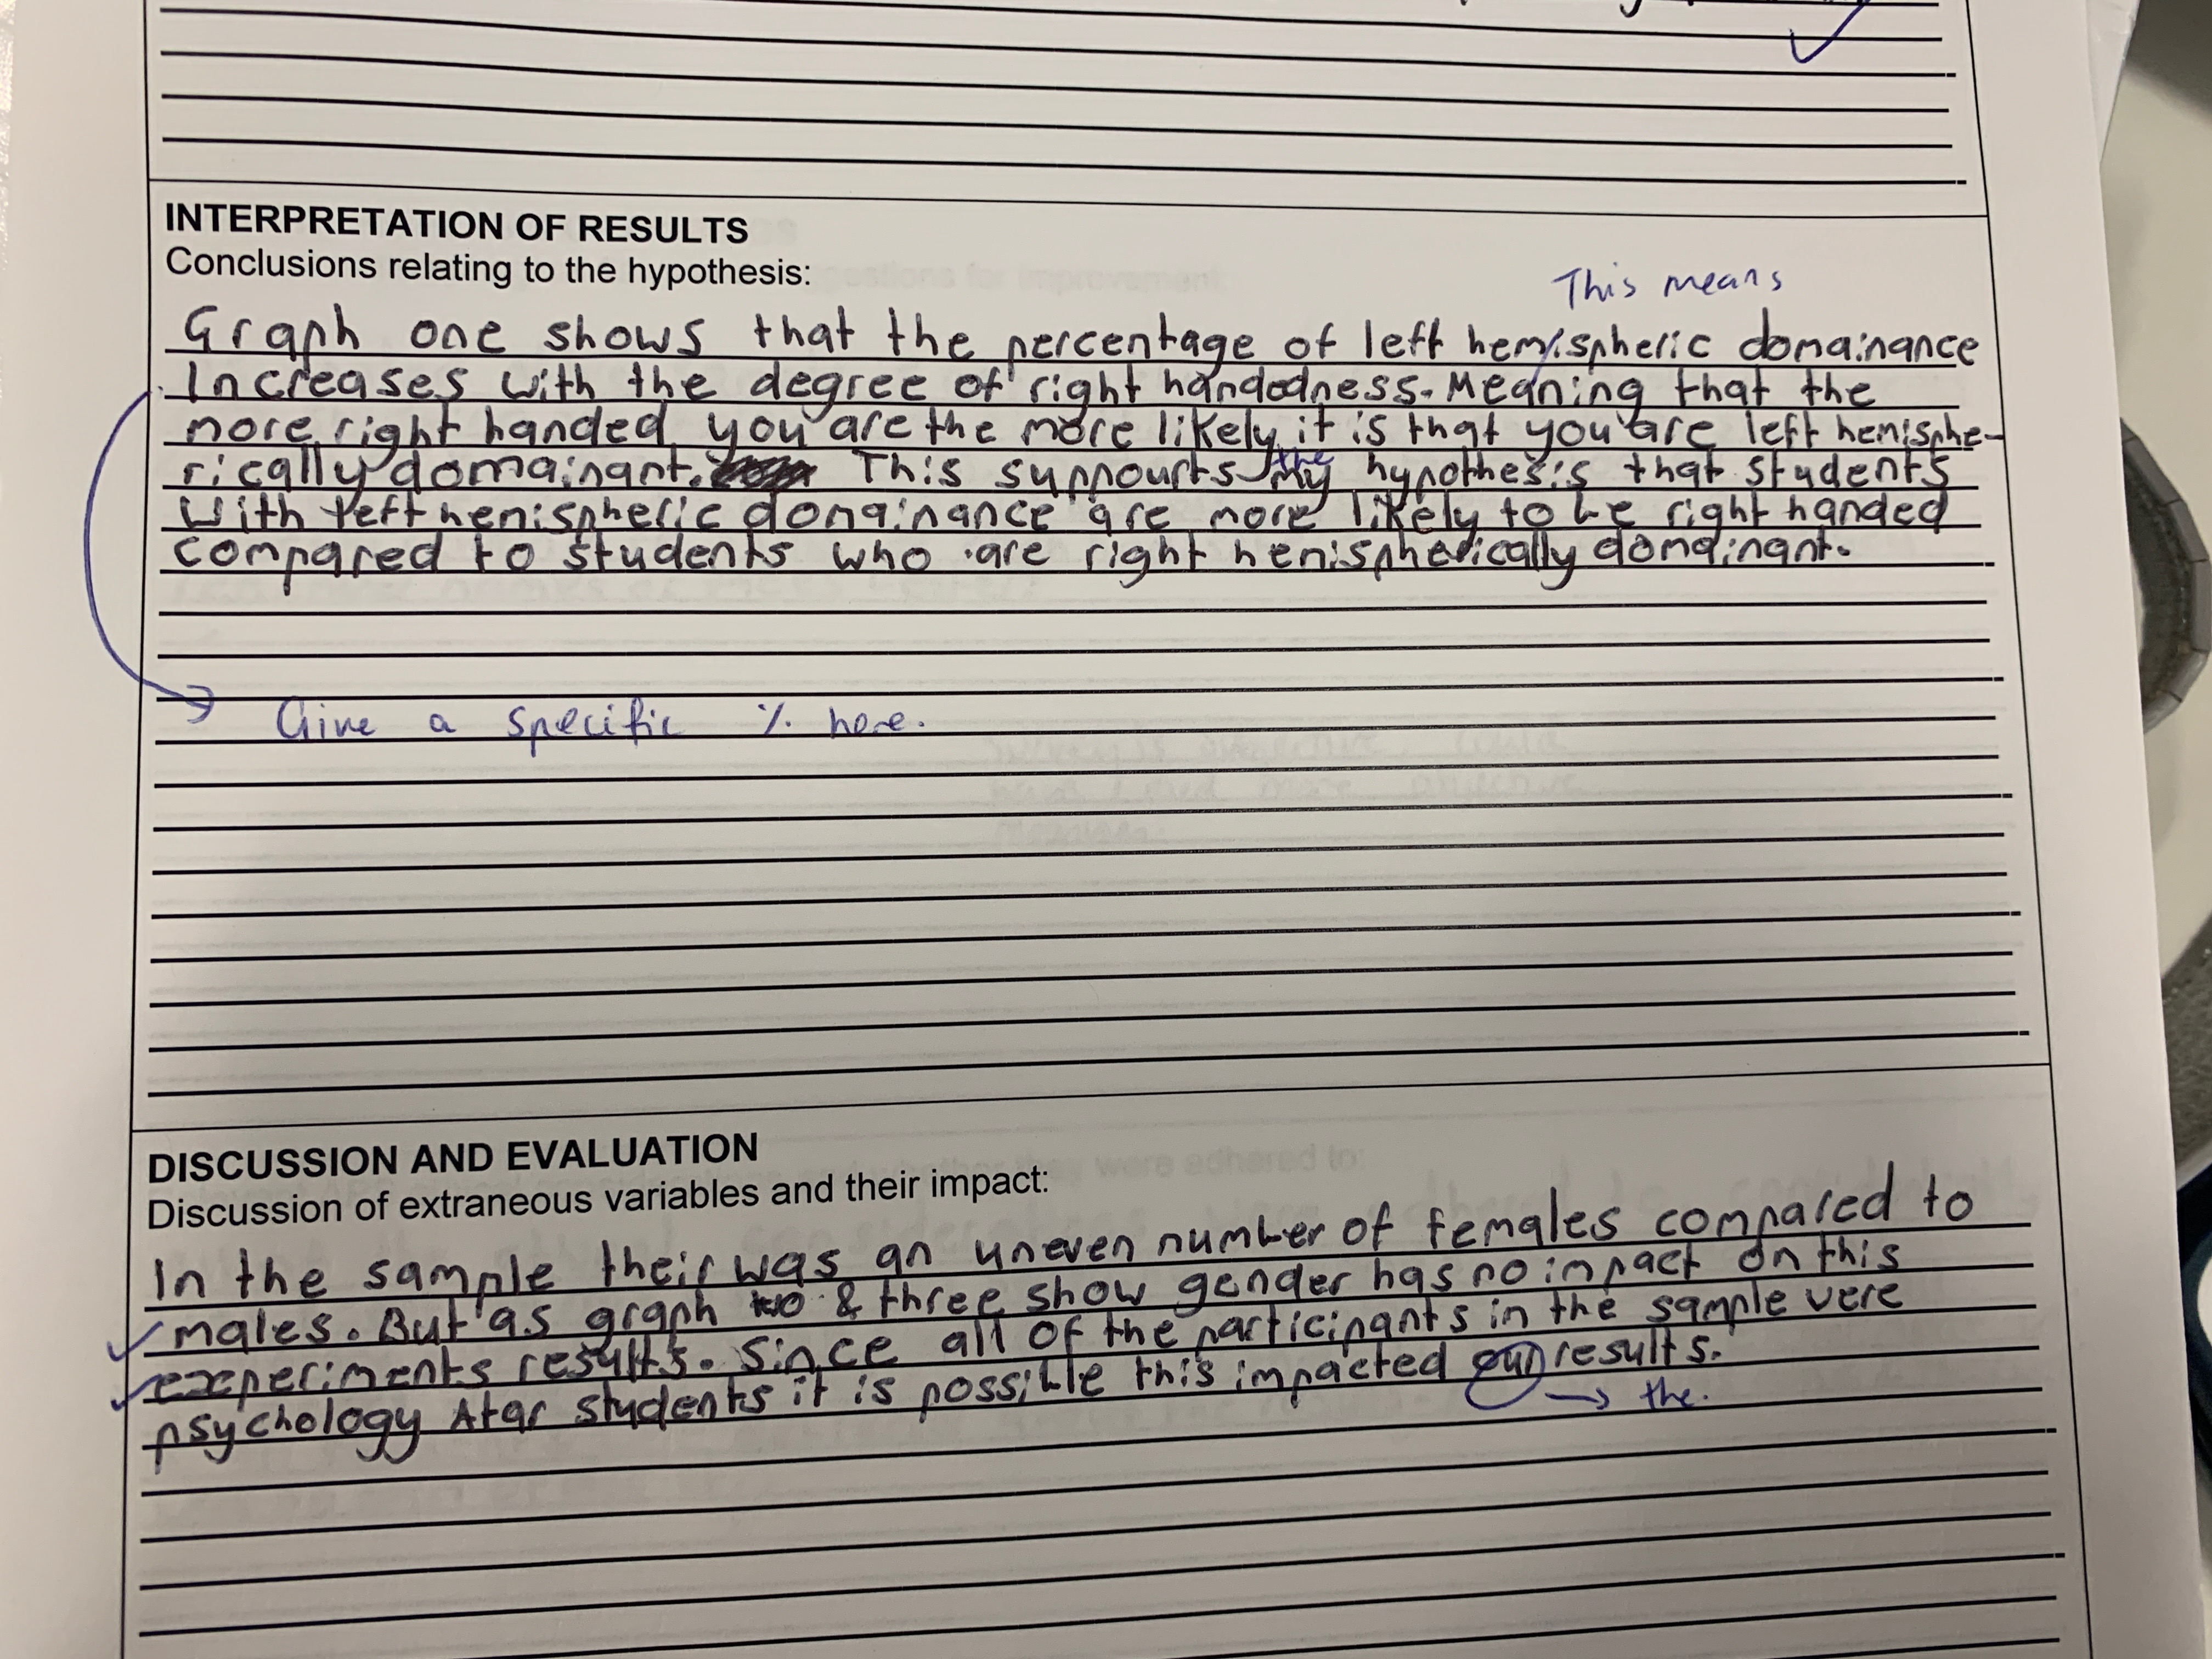 INTERPRETATION OF RESULTS
Conclusions relating to the hypothesis:
This means
Graph one shows that the percentage of left hemispheric domainance
Increases with the degree of right handedness. Meaning that the
more right handed you are the more likely it is that you are left hemisphe-
rically domainant. This suppourts my the hypothesis that students
With left hemispheric domainance are more likely to be right handed
compared to students who are right hemispherically domainant.
Give a specific % here.
DISCUSSION AND EVALUATION
Discussion of extraneous variables and their impact:
In the sample their was an uneven number of females compared to
males. But as graph two & three show gender has no impact on this
experiments results. Since all of the participants in the sample were
psychology Atar students it is possible this impacted our results.
the.